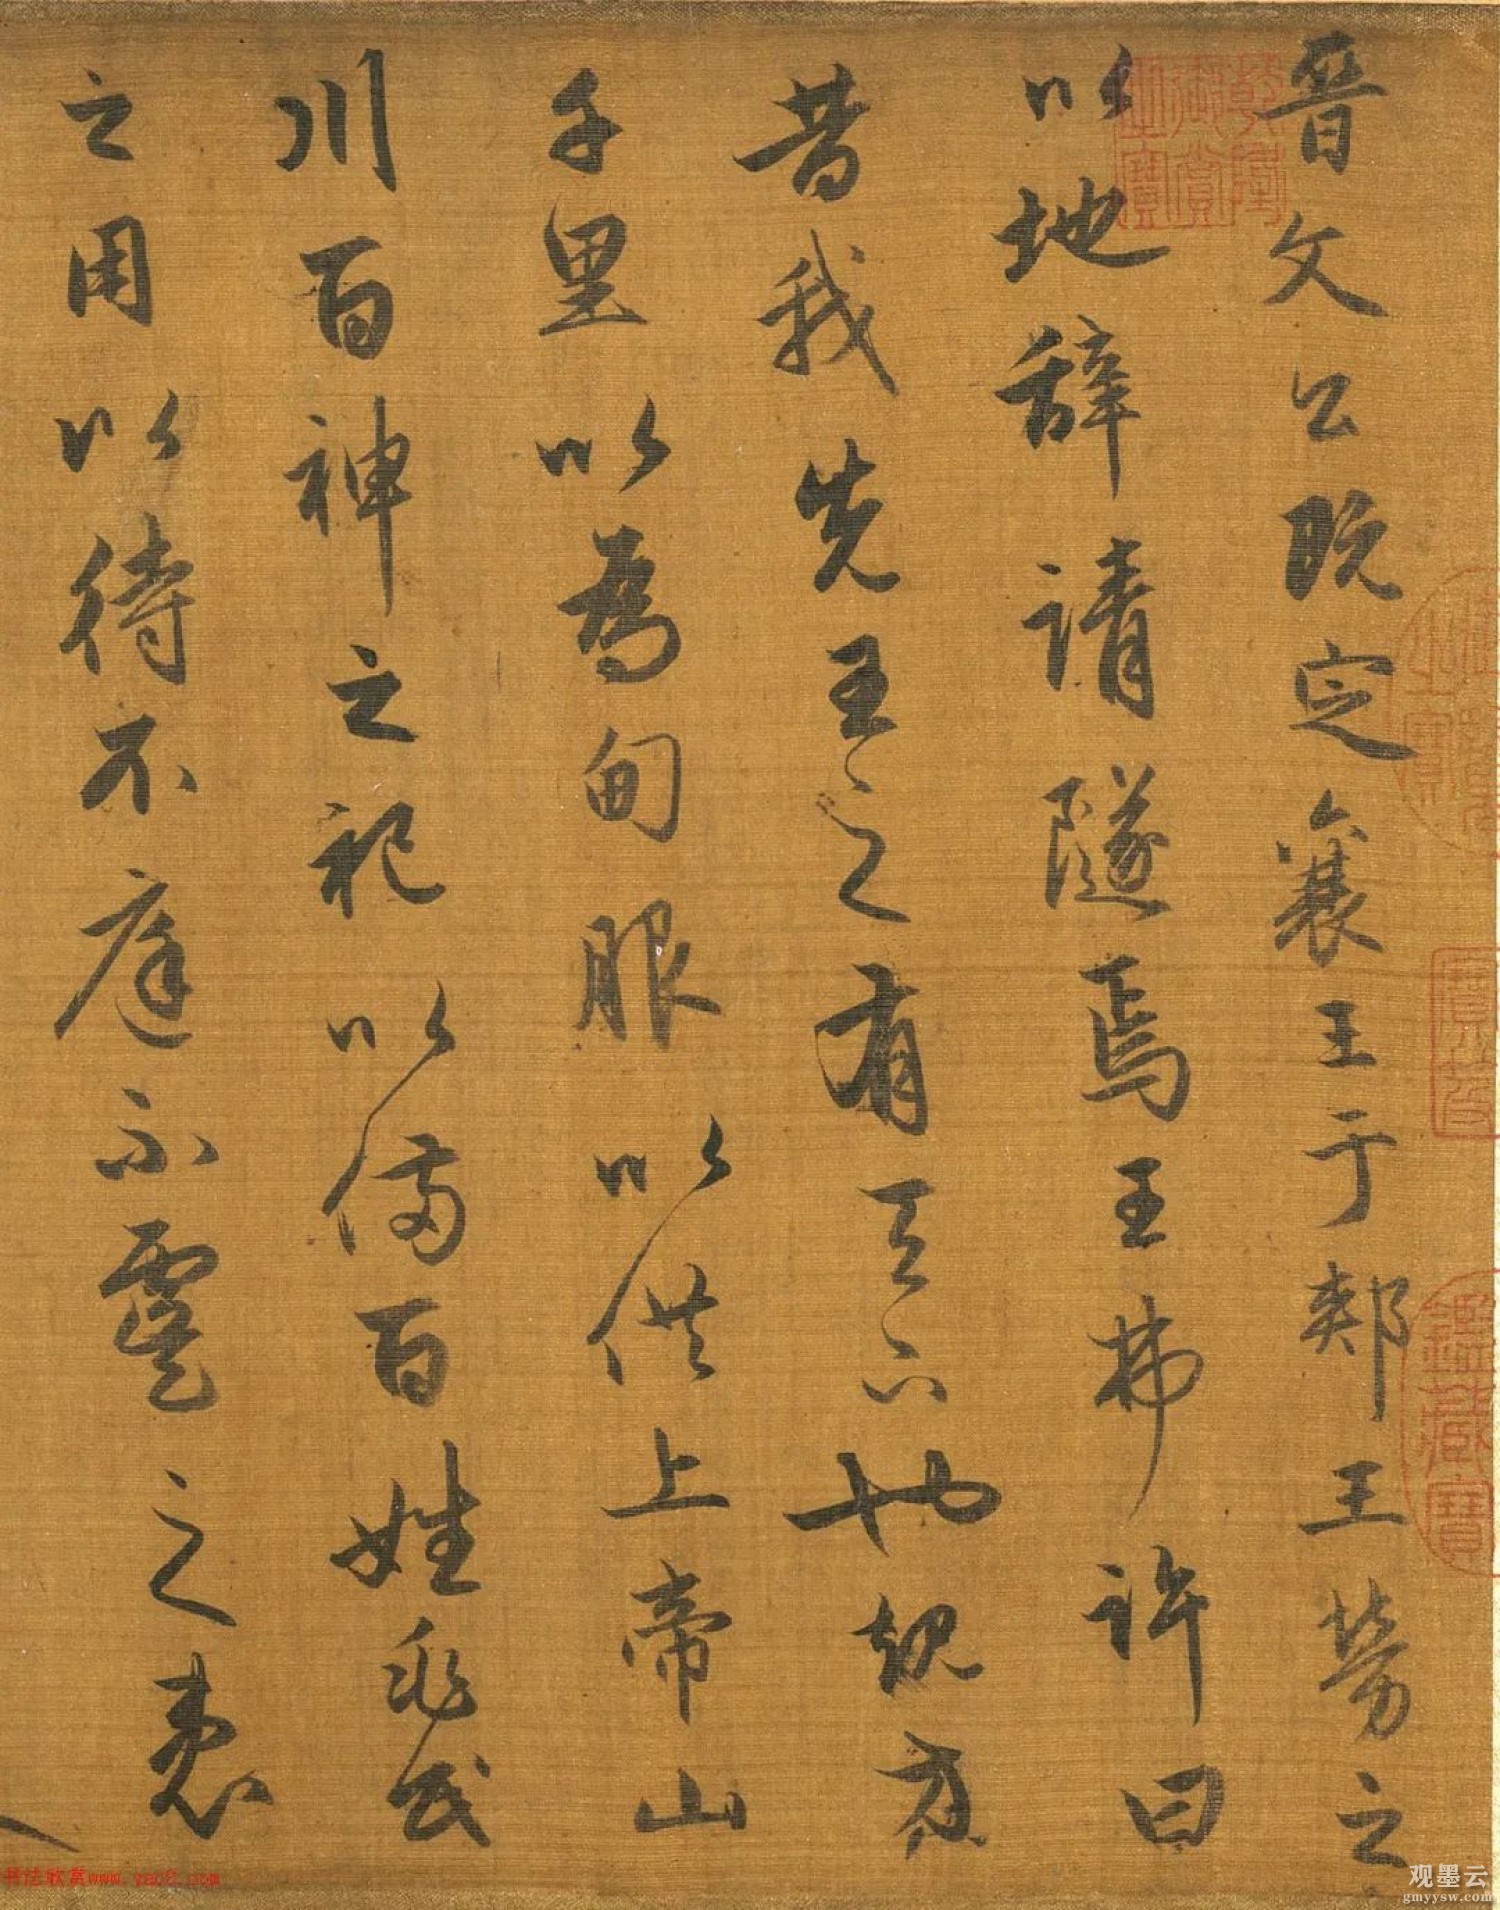 晉文公既定襄王于郟王勞之
以地辭請隧焉王弗許曰
昔我先王之有天下也規方
千里以為甸服以供上帝山
川百神之祀以備百姓兆民
之用以待不庭不虞之患
乾隆御賞之寶
鑑藏寶
书法欣赏www.yac8.com
观墨云
gmyysw.com